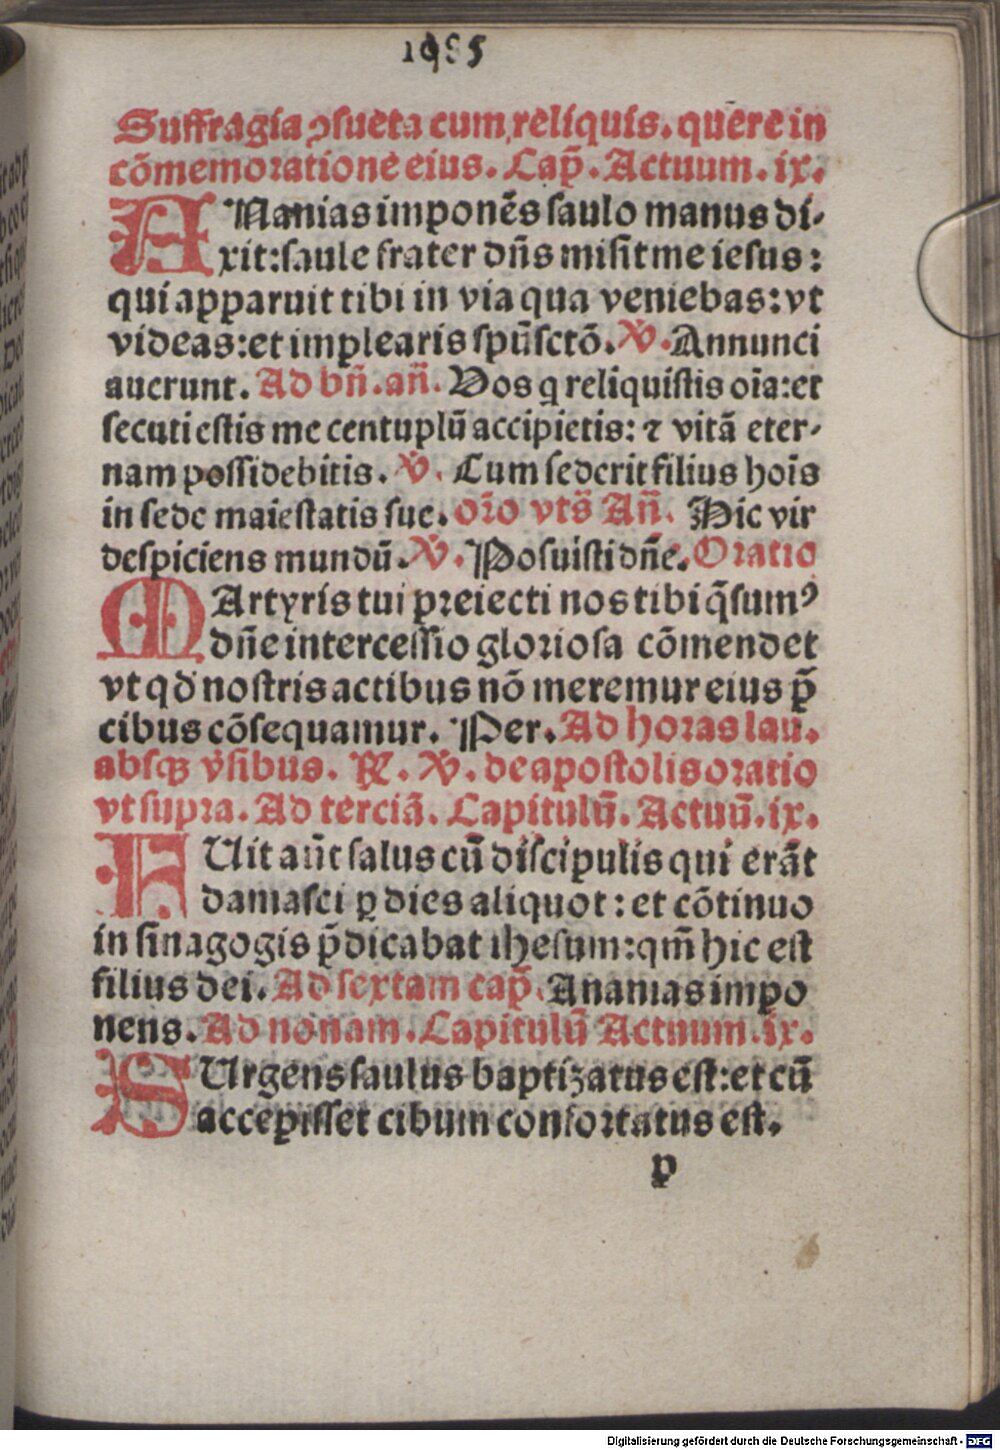 1985
Suffragia ꝯsueta cum reliquis. quere in
cōmemorationē eius. Cap̄. Actuum. ix.
ANanias imponēs saulo manus di-
xit: saule frater dn̄s misit me iesus:
qui apparuit tibi in via qua veniebas: vt
videas: et implearis spūsctō. ℣. Annunci
auerunt. Ad bn̄. an̄. Vos q reliquistis oīa: et
secuti estis me centuplū accipietis: ⁊ vitā eter-
nam possidebitis. ℣. Cum sederit filius hoīs
in sede maiestatis sue. oīo vts̄ An̄. Hic vir
despiciens mundū. ℣. Posuisti dn̄e. Oratio
MArtyris tui preiecti nos tibi q̄sumꝰ
dn̄e intercessio gloriosa cōmendet
vt qd nostris actibus nō meremur eius p̄
cibus cōsequamur. Per. Ad horas lau.
absqꝫ v̄sibus. ℟. ℣. de apostolis oratio
vt supra. Ad terciā. Capitulū. Actuū. ix.
FUit aūt salus cū discipulis qui erāt
damasci ꝑ dies aliquot: et cōtinuo
in sinagogis p̄dicabat ihesum: qm̄ hic est
filius dei. Ad sextam cap̄. Ananias impo
nens. Ad nonam. Capitulū Actuum. ix.
SUrgens saulus baptizatus est: et cū
accepisset cibum confortatus est.
p
Digitalisierung gefördert durch die Deutsche Forschungsgemeinschaft - DFG